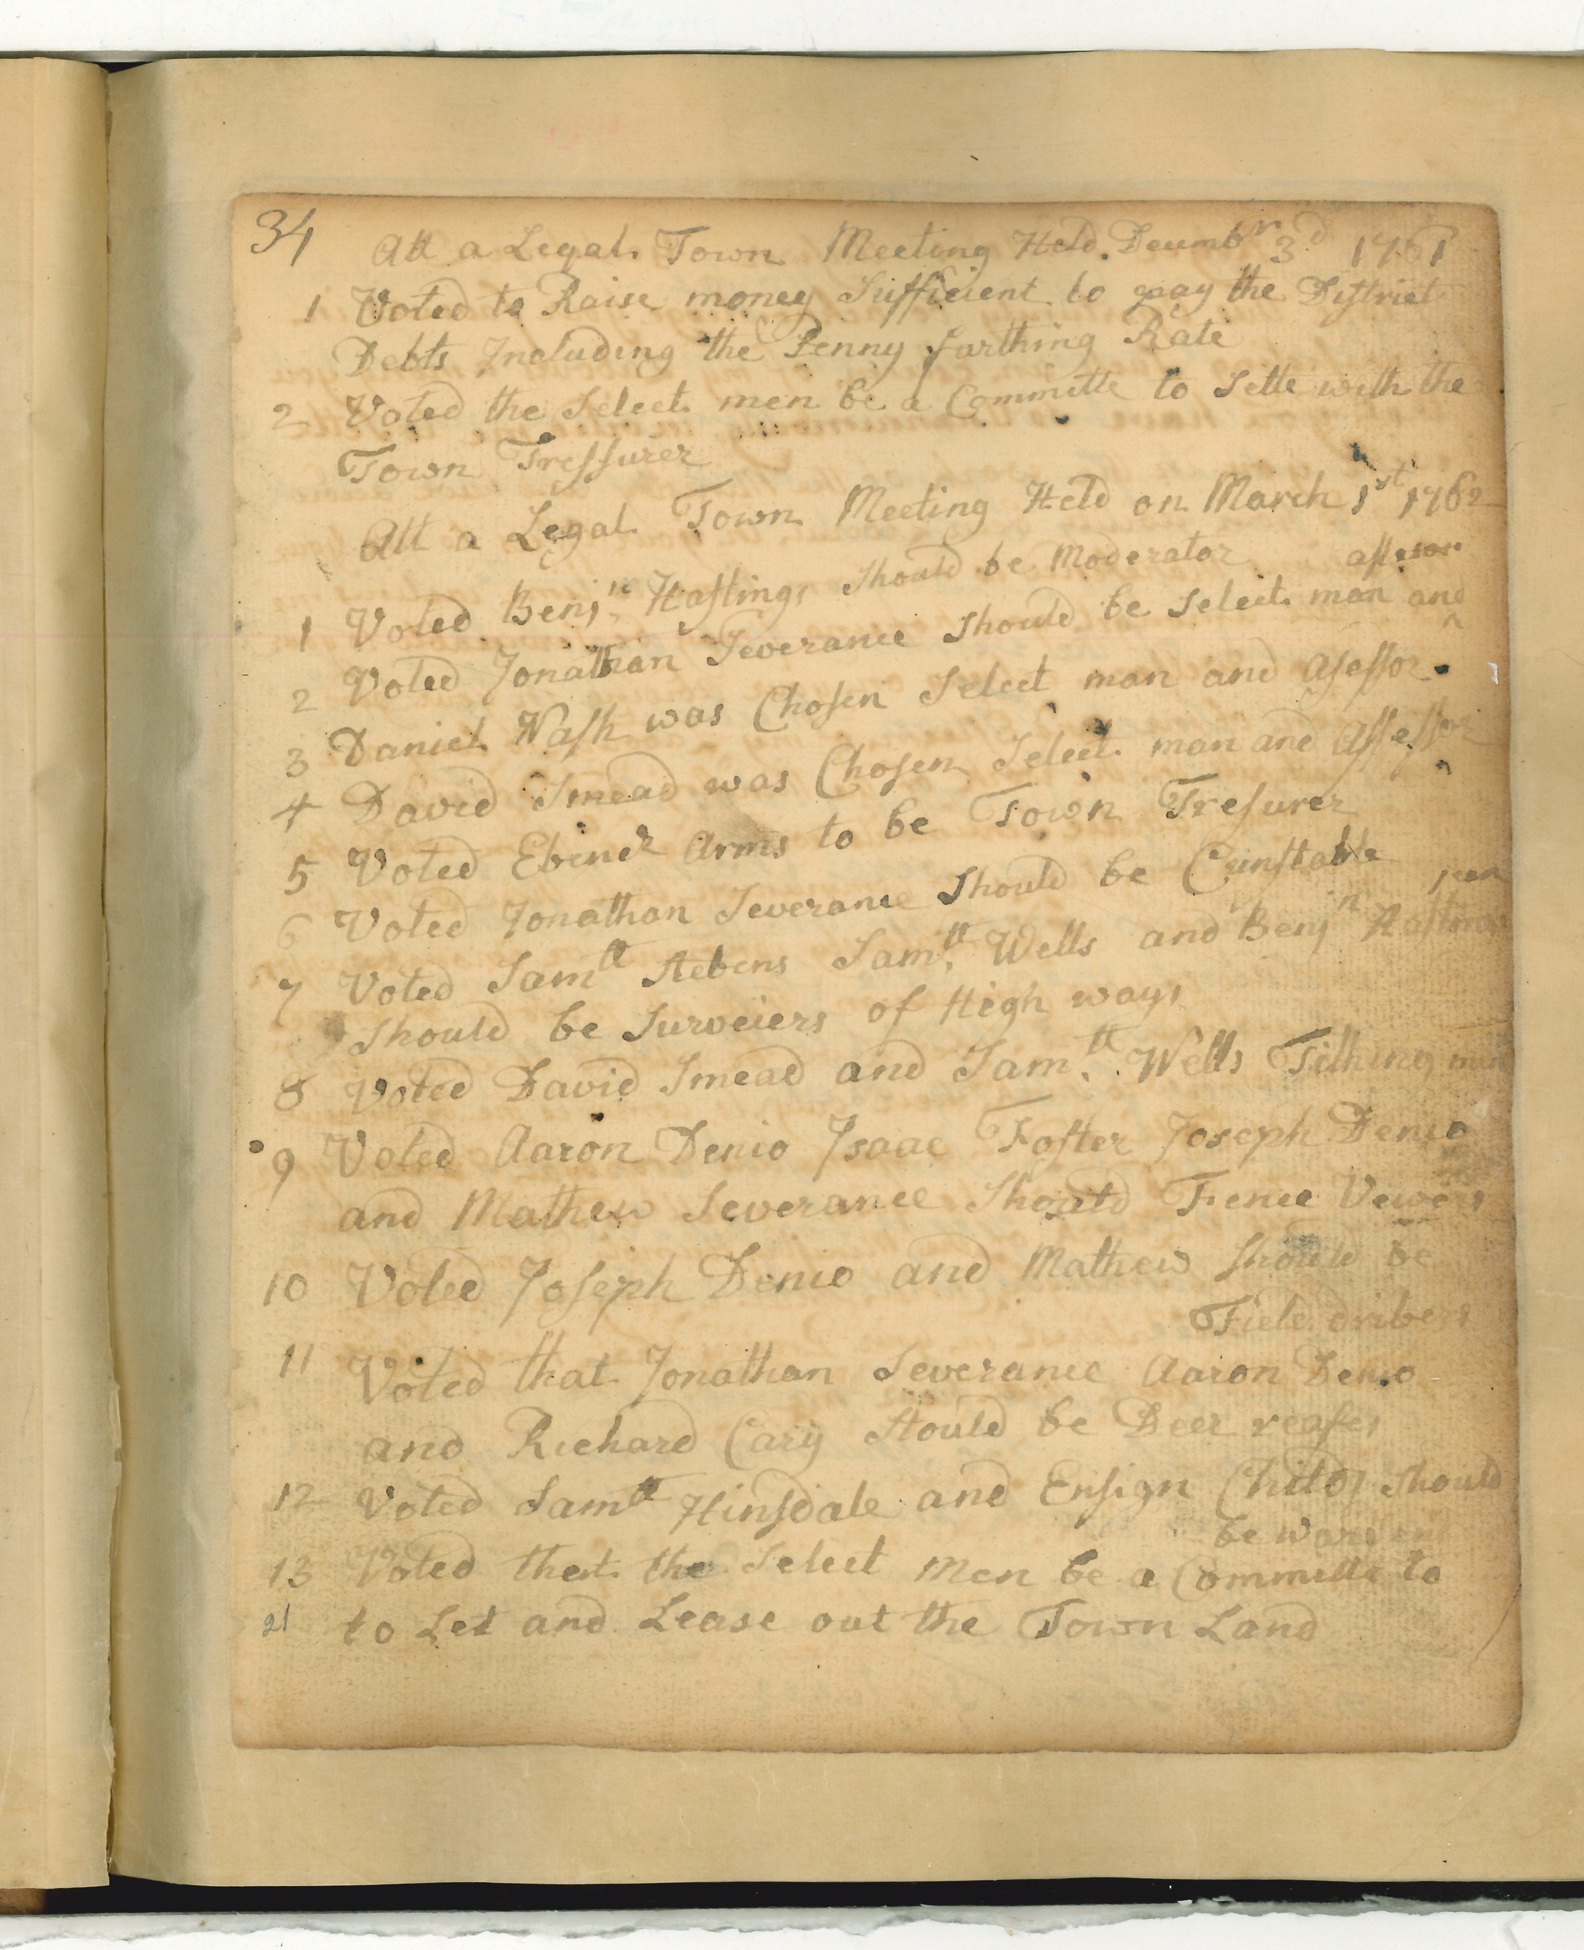 34
Att a Legal Town Meeting Held Decembr 3d 1761
1 Voted to Raise money Sufficient to pay the District
Debts Including the Penny farthing Rate
2 Voted the Select men be a Committe to Settle with the
Town Tressurer
Att a Legal Town Meeting Held on March 1st 1762
1 Voted Benjn Hastings Should be Moderator
assesor
2 Voted Jonathan Severance Should be Select man and
3 Daniel Nash was Chosen Select man and Asessor
4 David Smead was Chosen Select man and Assessor
5 Voted Ebener Arms to be Town Tresurer
6 Voted Jonathan Severance Should be Cunstable
7 Voted Samll Stebens Samll Wells and Benjn Hastings
Should be Surveiers of High ways
8 Voted David Smead and Samll Wells Tithing men
9 Voted Aaron Denio Isaac Foster Joseph Denio
and Mathew Severance Should Fence Vewers
10 Voted Joseph Denio and Mathew Should be
Field dribers
11 Voted that Jonathan Severance Aaron Denio
and Richard Cary Should be Deer reafes
12 Voted Samll Hinsdale and Ensign Childs Should
be
13 Voted that the Select Men be a Committe to
21 to Let and Lease out the Town Land